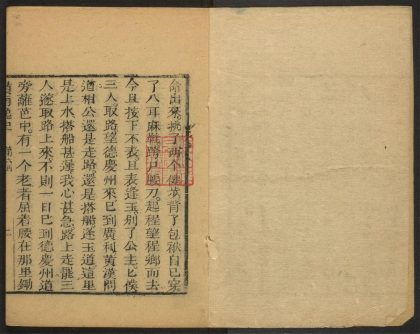 命出來挑了兩个健背了包袱自已穿
了八耳麻鞋跨腰刀起程望程鄉而去
今且按下不表且表逢玉別了公主僕
三人取路望德慶州來已到廣利黃漢問
道相公還是走路還是搭船逢玉道這里
是上水搭船甚遲我心甚急路上走罷三
人遂取路上來不則一日已到德慶州道
旁籬笆中有一个老者屈着腰在那里鋤